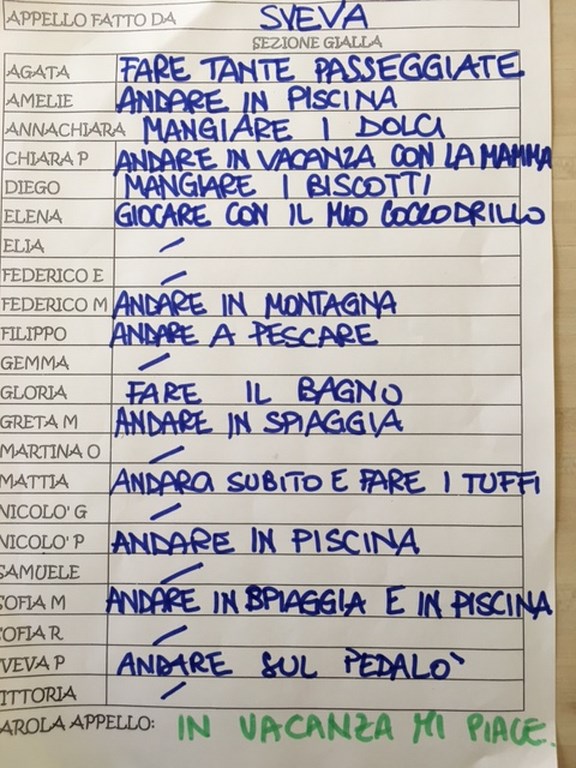 APPELLO FATTO DA SVEVA
SEZIONE GIALLA
AGATA FARE TANTE PASSEGGIATE
AMELIE ANDARE IN PISCINA
ANNACHIARA MANGIARE I DOLCI
CHIARA P ANDARE IN VACANZA CON LA MAMMA
DIEGO MANGIARE I BISCOTTI
ELENA GIOCARE CON IL MIO COCCODRILLO
ELIA /
FEDERICO E /
FEDERICO M ANDARE IN MONTAGNA
FILIPPO ANDARE A PESCARE
GEMMA /
GLORIA FARE IL BAGNO
GRETA M ANDARE IN SPIAGGIA
MARTINA O /
MATTIA ANDARCI SUBITO E FARE I TUFFI
NICOLO' G /
NICOLO' P ANDARE IN PISCINA
SAMUELE /
SOFIA M ANDARE IN SPIAGGIA E IN PISCINA
OFIA R /
VEVA P ANDARE SUL PEDALO'
ITTORIA /
AROLA APPELLO: IN VACANZA MI PIACE.